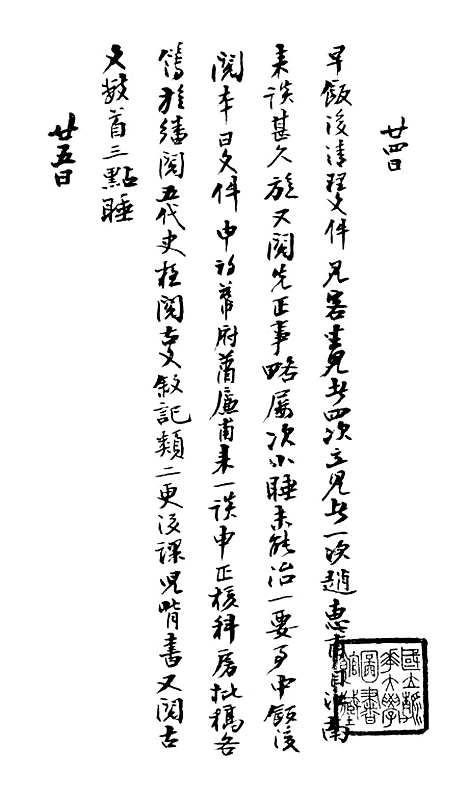 廿四日
早飯後清理文件見客坐見者四次立見者一次趙惠甫自河南
來談甚久旋又閱先正事略屢次小睡未能治一要事中飯後
閱本日文件申初至幕府蕭廉甫來一談申正核科房批稿各
簿旋繙閱五代史夜閱古文敘記類二更後課兒背書又閱古
文數首三點睡
廿五日
國立清華大學圖書館藏